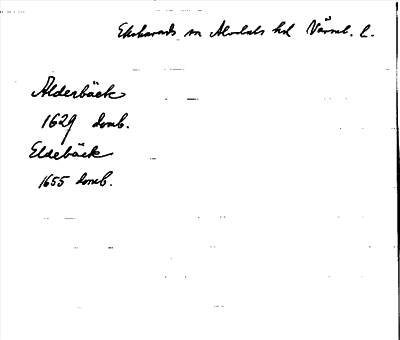 Ekshärads sn Älvdals hd Värml. l.
Älderbäck
1629 domb.
Eldebäck
1655 domb.